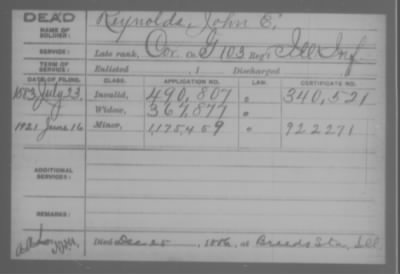 DEAD
NAME OF SOLDIER: Reynolds, John E.
SERVICE: Late rank, Cor. Co. G 103 Reg't Ill Inf
TERM OF SERVICE: Enlisted , 1 Discharged
DATE OF FILING. CLASS. APPLICATION NO. LAW. CERTIFICATE NO.
1883 July 23, Invalid, 490,807 " 340,521
Widow, 367,877 "
1921 June 16 Minor, 1175459 " 922271
ADDITIONAL SERVICES:
REMARKS:
Died Dec 25, 1886, at Breeds Sta, Ill.